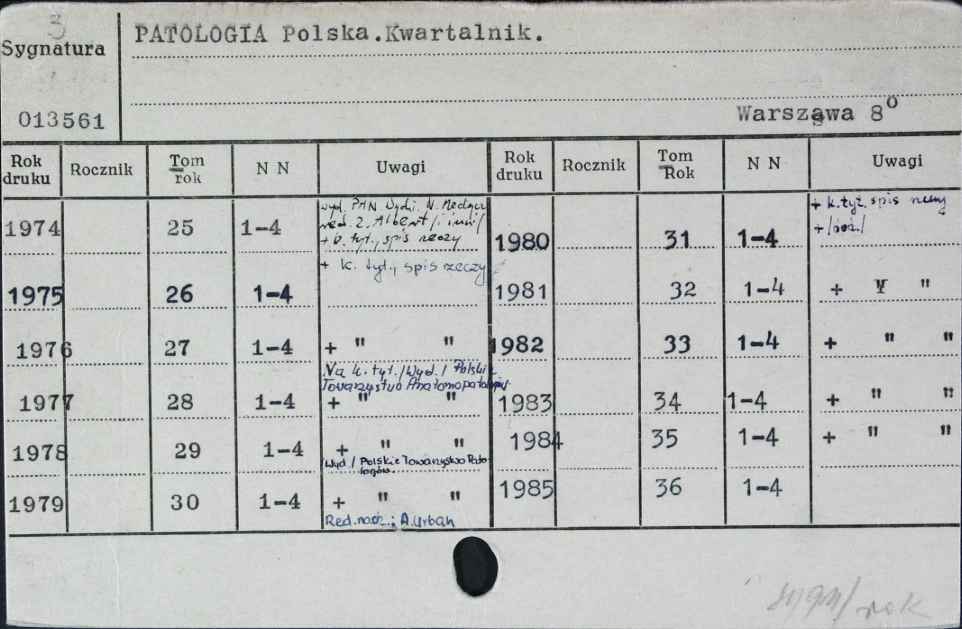 3
Sygnatura
013561
PATOLOGIA Polska.Kwartalnik.
Warszawa 8°
Rok druku Rocznik Tom rok N N Uwagi Rok druku Rocznik Tom Rok N N Uwagi
1974 25 1-4 wyd. PAN Wydz. N. Medycz
red. Z. Albert /i inni/
+ k. tyt., spis rzeczy
1975 26 1-4 + k. tyt., spis rzeczy
1976 27 1-4 + " "
Na k. tyt. /Wyd./ Polskie
Towarzystwo Anatomopatologów
1977 28 1-4 + " "
1978 29 1-4 + " "
Wyd./ Polskie Towarzystwo Pato-
logów.
1979 30 1-4 + " "
Red. nacz.: A. Urban
1980 31 1-4 + k. tyt. spis rzeczy
+
1981 32 1-4 + " "
1982 33 1-4 + " "
1983 34 1-4 + " "
1984 35 1-4 + " "
1985 36 1-4
rok